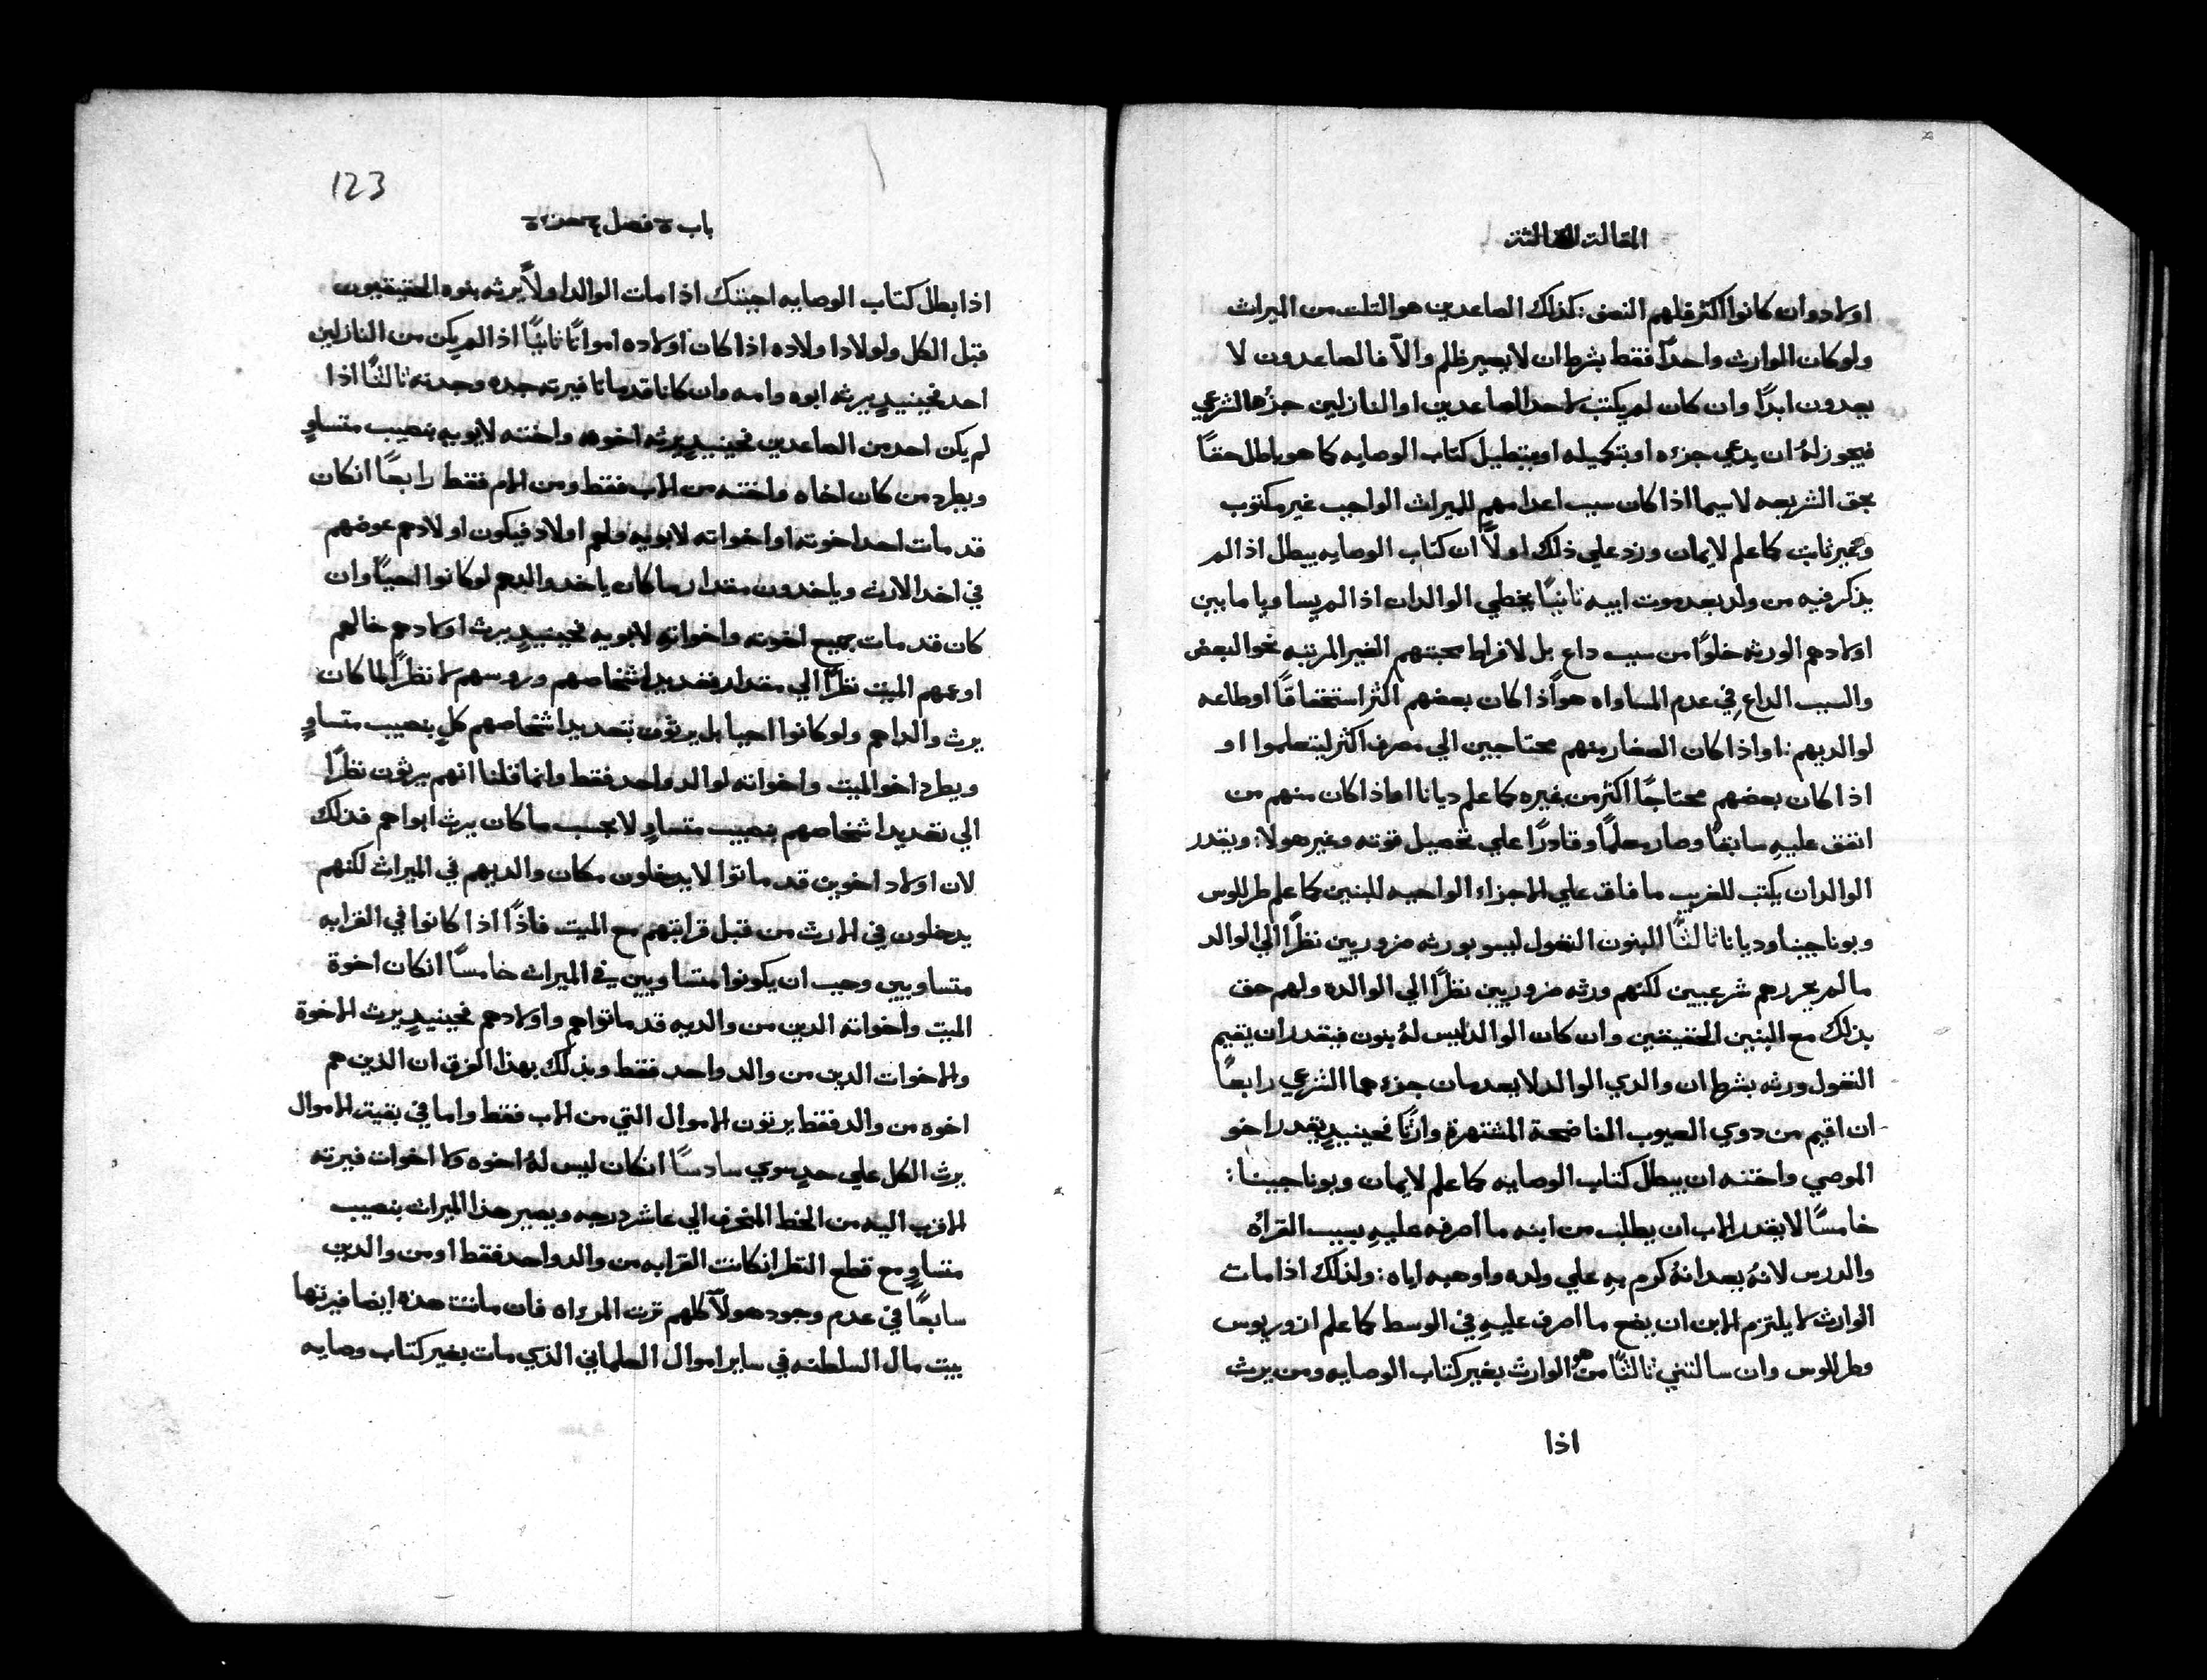 المقالة الثالثة
اولاد وان كانوا اكثر فلهم النصف: كذلك الصاعدين هو التلت من الميراث
ولو كان الوارث واحدًا فقط بشرط ان لا يصير ظلم والاّ فالصاعدون لا
يعدون ابدًا وان كان لم يكتب لاحد الصاعدين او النازلين جزُها الشرعي
فيجوز لهُ ان يدعي جزءه او بتكميله او بتبطيل كتاب الوصايه كما هو باطل حقًا
بحق الشريعه لا سيما اذا كان سبب اعدامهم للميراث الواجب غير مكتوب
وغير ثابت كما علم لايمان وزد علي ذلك اولاً ان كتاب الوصايه يبطل اذا لم
يذكر فيه من ولد بعد موت ابيه تانيًا يخطي الوالدان اذا لم يساويا ما بين
اولادهم الورثه خلوًا من سبب داع بل لافراط محبتهم الغير المرتبه نحو البعض
والسبب الداع في عدم المساواه هو اذا كان بعضهم اكثر استحقاقًا او طاعه
لوالديهم: او اذا كان الصغار منهم محتاجين الي مصرف اكثر ليتعلموا او
اذا كان بعضهم محتاجًا اكثر من غيره كما علم ديانا او اذا كان منهم من
انفق عليهِ سابقًا وصار معلمًا وقادرًا علي تحصيل قوته وغير هولا: ويقدر
الوالدان يكتب للغريب ما فاق علي الاجزاء الواجبه للبنين كما علم طرللوس
وبوناجينا وديانا تالتًا البنون النغول ليسو بورثه ضروريين نظرًا الي الوالد
ما لم يحررهم شرعيين لكنهم ورثه ضروريين نظرًا الي الوالده ولهم حق
بذلك مع البنين الحقيقين وان كان الوالد ليس لهُ بنون فيقدر ان يقيم
النغول ورثه بشرط ان والدي الوالد لا يعدمان جزءهما الشرعي رابعًا
ان اقيم من دوي العيوب الفاضحة المشتهرة وارثًا فحينيدٍ يقدر اخو
الموصي واخته ان يبطل كتاب الوصايه كما علم لايمان وبوناجينا:
خامسًا لا يقدر الاب ان يطلب من ابنه ما اصرفه عليهِ بسبب القراة
والدرس لانهُ يعد انهُ كرم بهِ علي ولده واوهبه اياه: ولذلك اذا مات
الوارث لا يلتزم الابن ان يضع ما اصرف عليهِ في الوسط كما علم ازوريوس
وطرللوس وان سالتني ثالثًا من هو الوارث بغير كتاب الوصايه ومن يرث
اذا
123
باب فصل
اذا بطل كتاب الوصايه اجبتك اذا مات الوالد اولاً يرثه بنوه الحقيقيون
قبل الكل واولاد اولاده اذا كان اولاده امواتًا تانيًا اذا لم يكن من النازلين
احد فحينيدٍ يرثه ابوه وامه وان كانا قد ماتا فيرثه جده وجدته ثالثًا اذا
لم يكن احد من الصاعدين فحينيدٍ يرثه اخوه واخته لابويه بنصيب متساوٍ
ويطرد من كان اخاه واخته من الاب فقط ومن الام فقط رابعًا انكان
قد مات احد اخوته او اخواته لابويه ولهم اولاد فيكون اولادهم عوضهم
في اخد الارث وياخدون مقدار ما كان ياخد والدهم لو كانوا احيًا وان
كان قد مات جميع اخوته واخواتهِ لابويه فحينيدٍ يرث اولادهم خالهم
او عمهم الميت نظرًا الي مقدار تعديد اشخاصهم وروسهم لا نظرًا لما كان
يرث والداهم ولو كانوا احيا بل يرثون بتعديد اشخاصهم كلٍ بنصيب متساوٍ
ويطرد اخو الميت واخواته لوالد واحد فقط وانما قلنا انهم يرثون نظرًا
الي تعديد اشخاصهم بنصيب متساوٍ لا بحسب ما كان يرث ابواهم فذلك
لان اولاد اخوين قد ماتوا لا يدخلون مكان والديهم في الميراث لكنهم
يدخلون في الارث من قبل قرابتهم مع الميت فاذًا اذا كانوا في القرابه
متساويين وجب ان يكونوا متساويين في الميراث خامسًا انكان اخوة
الميت واخواته الدين من والديه قد ماتوا هم واولادهم فحينيدٍ يرث الاخوة
والاخوات الدين من والد واحد فقط وبذلك بهذا الفرق ان الذين هم
اخوه من والد فقط يرثون الاموال التي من الاب فقط واما في بقيت الاموال
يرث الكل علي حدٍ سوي سادسًا انكان ليس لهُ اخوه ولا اخوات فيرته
الاقرب اليه من الخط المنحرف الي عاشر درجه ويصير هذا الميراث بنصيب
متساوٍ مع قطع النظر انكانت القرابه من والد واحد فقط او من والدين
سابعًا في عدم وجود هولآ كلهم ترث المرءاه فان ماتت هذه ايضا فيرثها
بيت مال السلطنه في ساير اموال العلماني الذي مات بغير كتاب وصايه